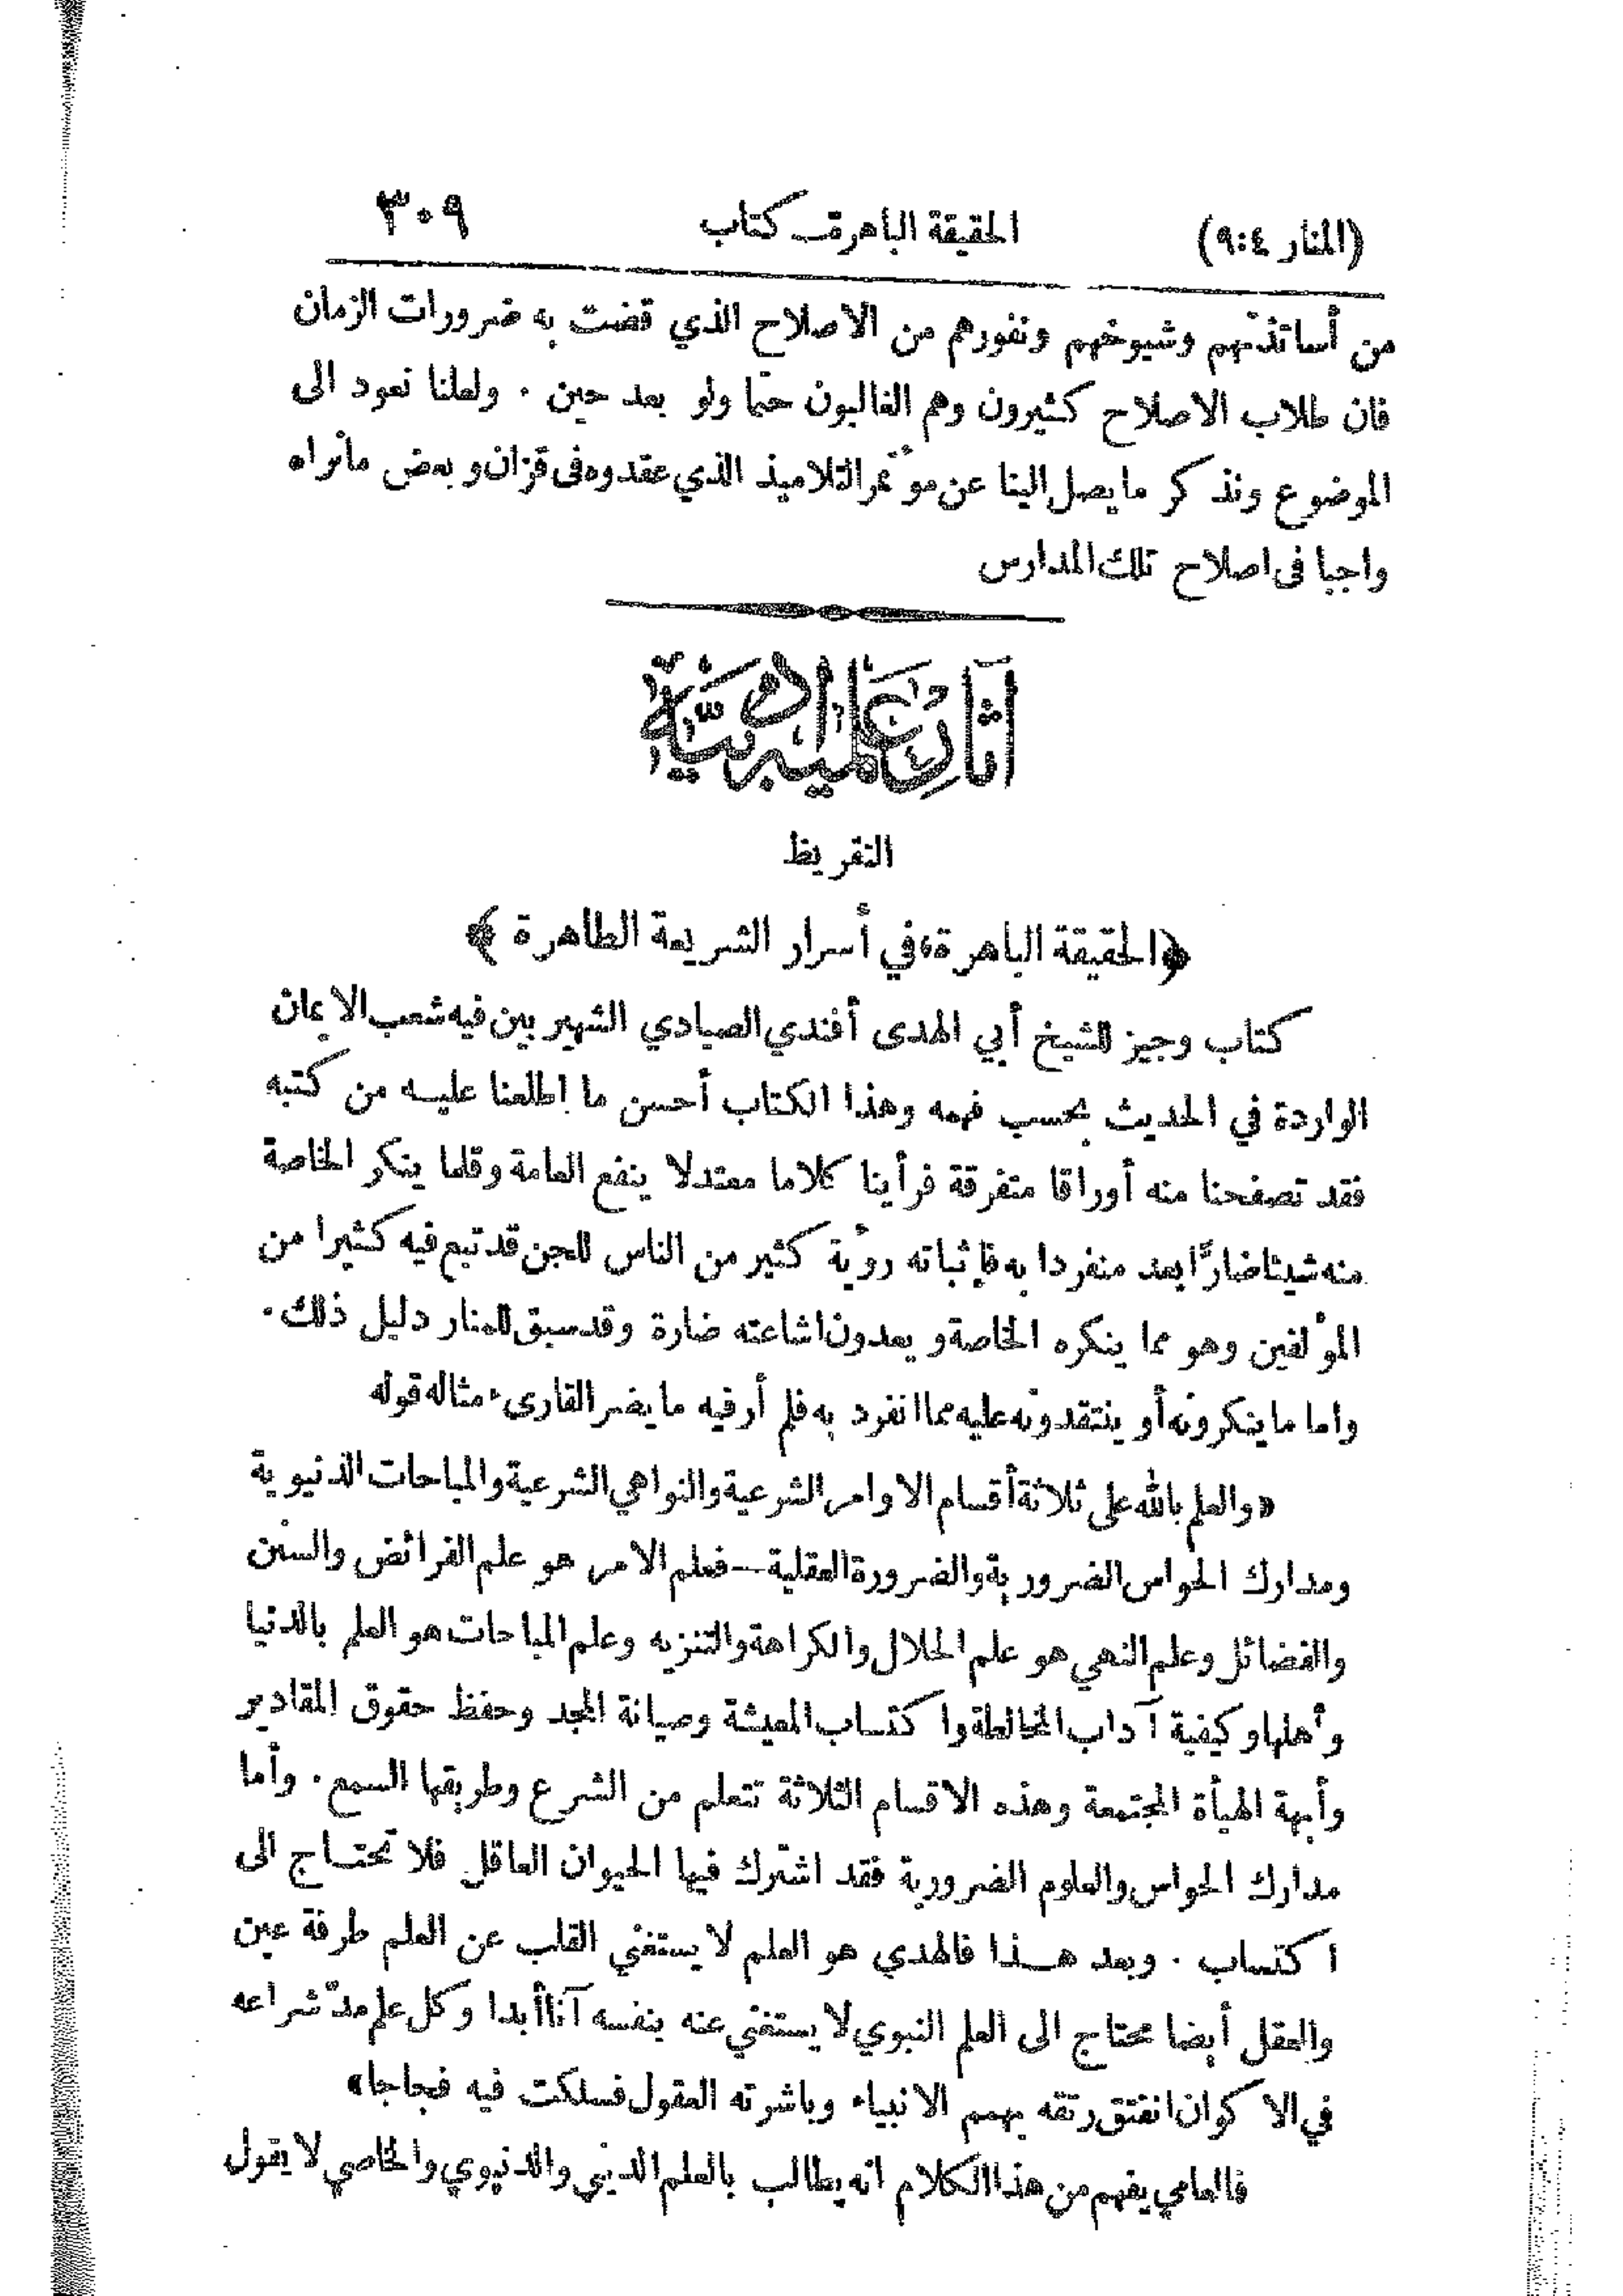 (المنار ٤:٩) الحقيقة الباهرة كتاب ٣٠٩
من أساتذتهم وشيوخهم ونفورهم من الاصلاح الذي قضت به ضرورات الزمان
فان طلاب الاصلاح كثيرون وهم الغالبون حتما ولو بعد حين . ولعلنا نعود الى
الموضوع ونذكر ما يصل الينا عن مؤتمر التلاميذ الذي عقدوه فى قزان وبعض مانراه
واجبا فى اصلاح تلك المدارس
آثار علمية ادبية
التقريظ
﴿الحقيقة الباهرة، في أسرار الشريعة الطاهرة﴾
كتاب وجيز للشيخ أبي الهدى أفندي الصيادي الشهير بين فيه شعب الايمان
الواردة في الحديث بحسب فهمه وهذا الكتاب أحسن ما اطلعنا عليه من كتبه
فقد تصفحنا منه أوراقا متفرقة فرأينا كلاما معتدلا ينفع العامة وقلما ينكر الخاصة
منه شيئا ضارًا يعد منفردا به فإثباته رؤية كثير من الناس للجن قد تبع فيه كثيرا من
المؤلفين وهو مما ينكره الخاصة ويعدون اشاعته ضارة وقد سبق للمنار دليل ذلك.
واما ما ينكرونه أو ينتقدونه عليه مما انفرد به فلم أر فيه ما يضر القارىء مثاله قوله
«والعلم بالله على ثلاثة أقسام الاوامر الشرعية والنواهي الشرعية والمباحات الدنيوية
ومدارك الحواس الضرورية والضرورة العقلية — فعلم الامر هو علم الفرائض والسنن
والفضائل وعلم النهي هو علم الحلال والكراهة والتنزيه وعلم المباحات هو العلم بالدنيا
وأهلها وكيفية آداب المخالطة واكتساب المعيشة وصيانة المجد وحفظ حقوق المقادير
وأبهة الهيأة المجتمعة وهذه الاقسام الثلاثة تتعلم من الشرع وطريقها السمع . وأما
مدارك الحواس والعلوم الضرورية فقد اشترك فيها الحيوان العاقل فلا تحتاج الى
اكتساب . وبعد هذا فالهدي هو العلم لا يستغني القلب عن العلم طرفة عين
والعقل أيضا محتاج الى العلم النبوي لا يستغني عنه بنفسه آنا أبدا وكل علم مدّ شراعه
في الاكوان انفتق رتقه بهمم الانبياء وباشرته العقول فسلكت فيه فجاجا»
فالعامي يفهم من هذا الكلام انه يطالب بالعلم الديني والدنيوي والخاصي لا يقول